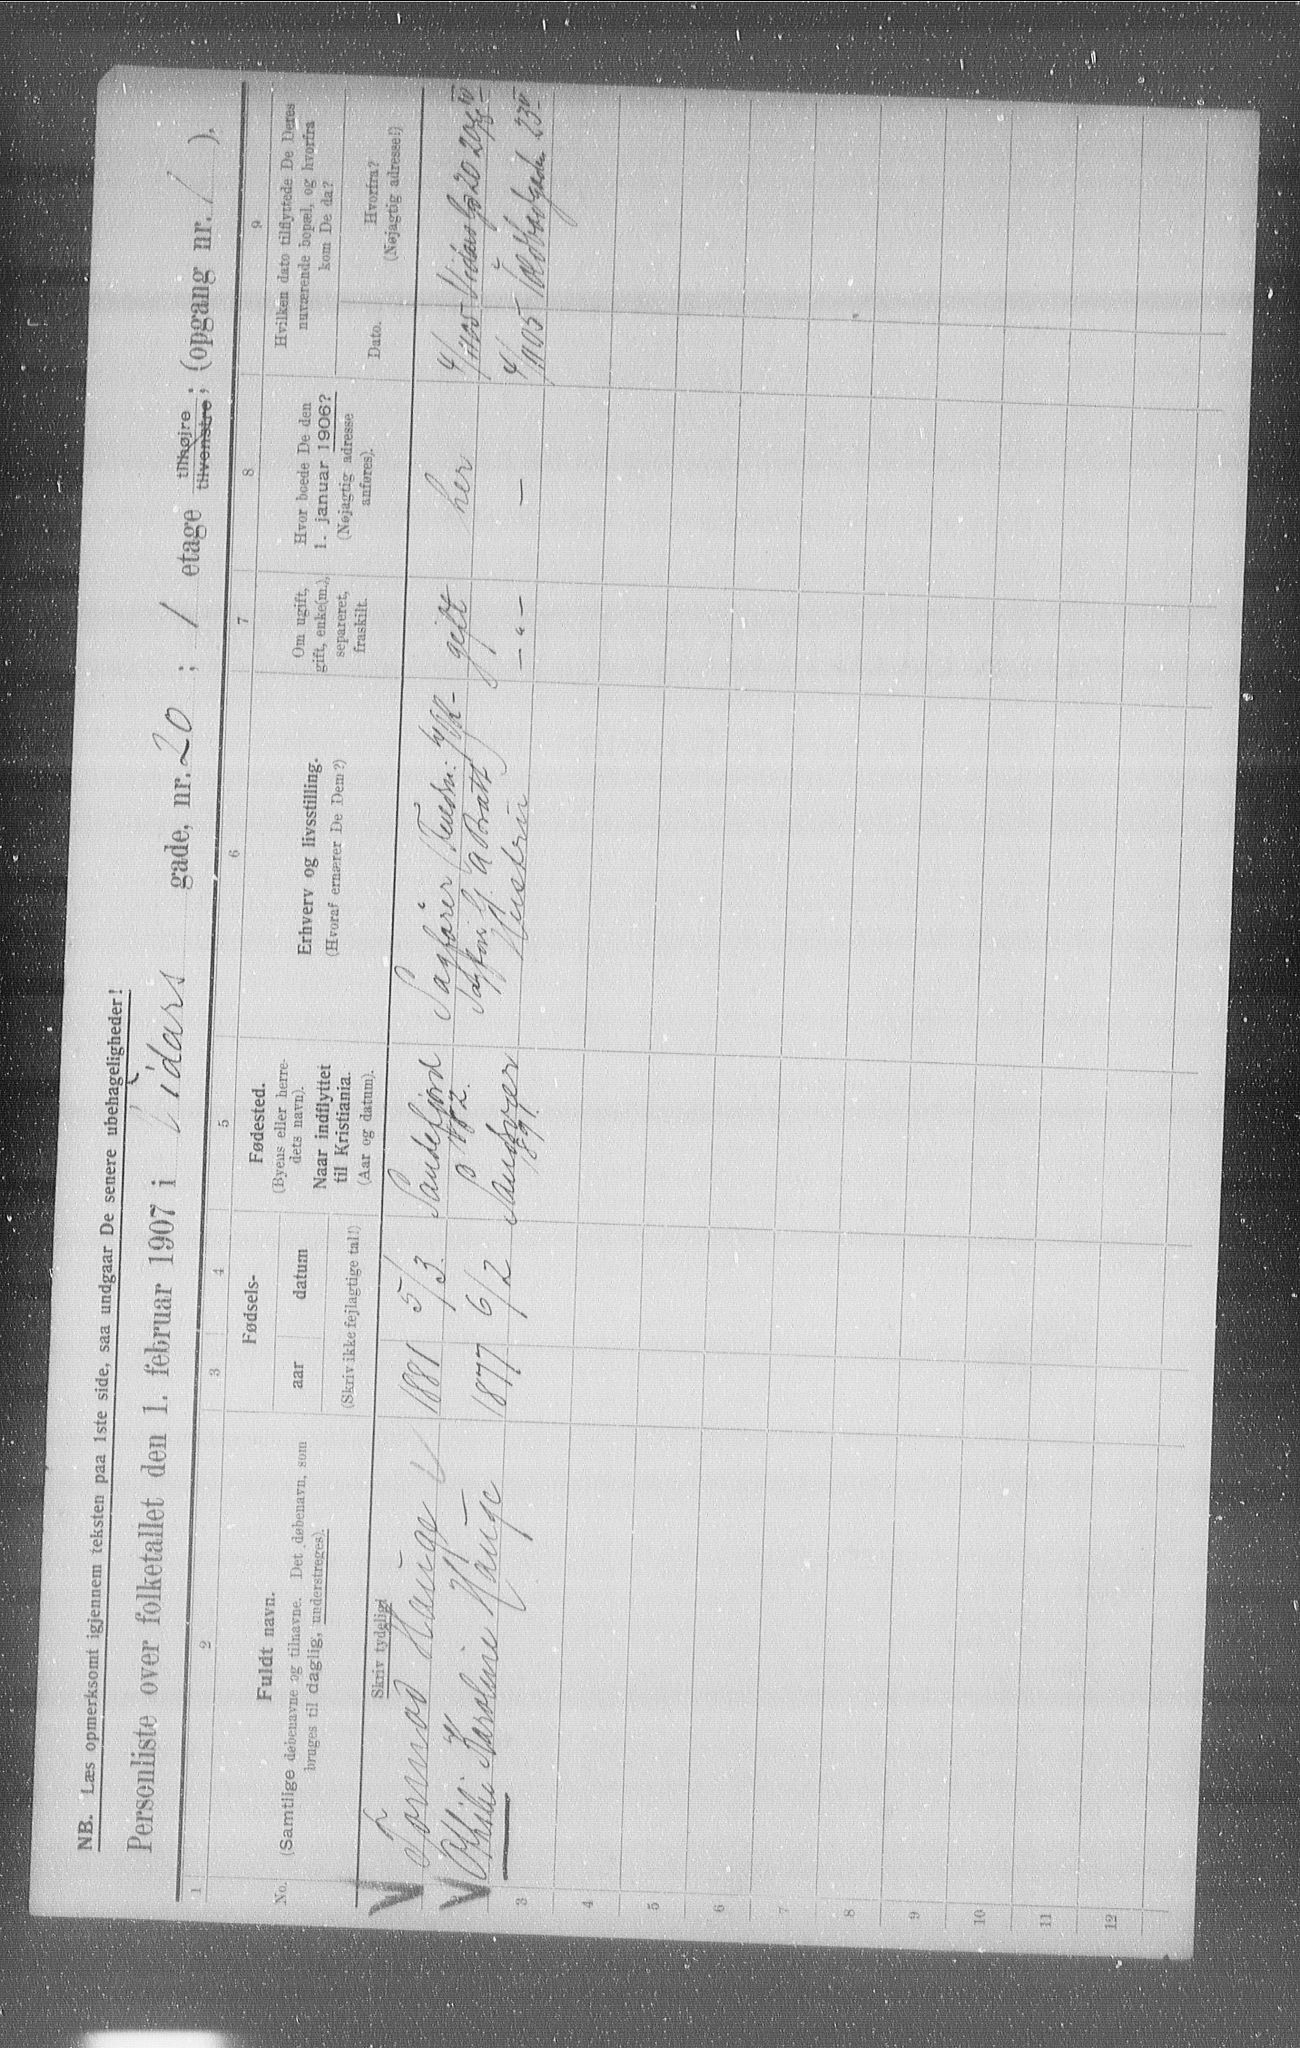 NB. Læs opmerksomt igjennem teksten paa 1ste side, saa undgaar De senere ubehageligheder!
Personliste over folketallet den 1. februar 1907 i Vidars gade, nr. 20; 1 etage tilhøjre; tilvenstre; (opgang nr. 1 ).
1 2 3 4 5 6 7 8 9
No.
Fuldt navn.
(Samtlige døbenavne og tilnavne. Det døbenavn, som
bruges til daglig, understreges).
Skriv tydeligt
Fødsels-
aar datum
(Skriv ikke fejlagtige tal!)
Fødested.
(Byens eller herre-
dets navn).
Naar indflyttet
til Kristiania.
(Aar og datum).
Erhverv og livsstilling.
(Hvoraf ernærer De Dem?)
Om ugift,
gift, enke(m.),
separeret,
fraskilt.
Hvor boede De den
1. januar 1906?
(Nøjagtig adresse
anføres).
Hvilken dato tilflyttede De Deres
nuværende bopæl, og hvorfra
kom De da?
Dato.
Hvorfra?
(Nøjagtig adresse!)
Tormod Hauge 1881 5/3 Sandefjord Sagfører gift her
1882.
Othilie Karoline Hauge 1877 6/2 Sandsvær Hustru - " - -
1891.
3
4
5
6
7
8
9
10
11
12